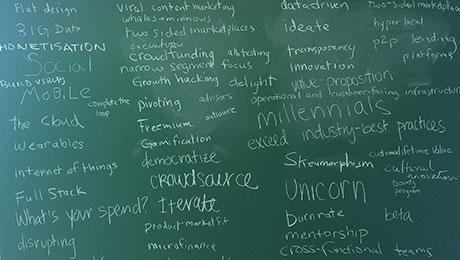 Flat design
BIG Data
MONETISATION
Social
MOBILE
complete the
loop
the cloud
wearables
internet of things
Full Stack
What's your spend?
disrupting
Viral content marketing
whales + minnows
Two sided marketplaces
crowdfunding
ab testing
narrow segment focus
Growth hacking
delight
pivoting
advisors
Freemium
outsource
Gamification
democratize
crowdsource
Iterate
product-market fit
microfinance
data driven
ideate
transparency
innovation
value-proposition
operational and customer-facing infrastructure
millennials
exceed industry-best practices
Skeumorphism
UNICORN
Burnrate
beta
mentorship
cross-functional teams
Two-sided marketplace
hyper local
p2p lending
platforms
customer lifetime value
cultural
innovation
program